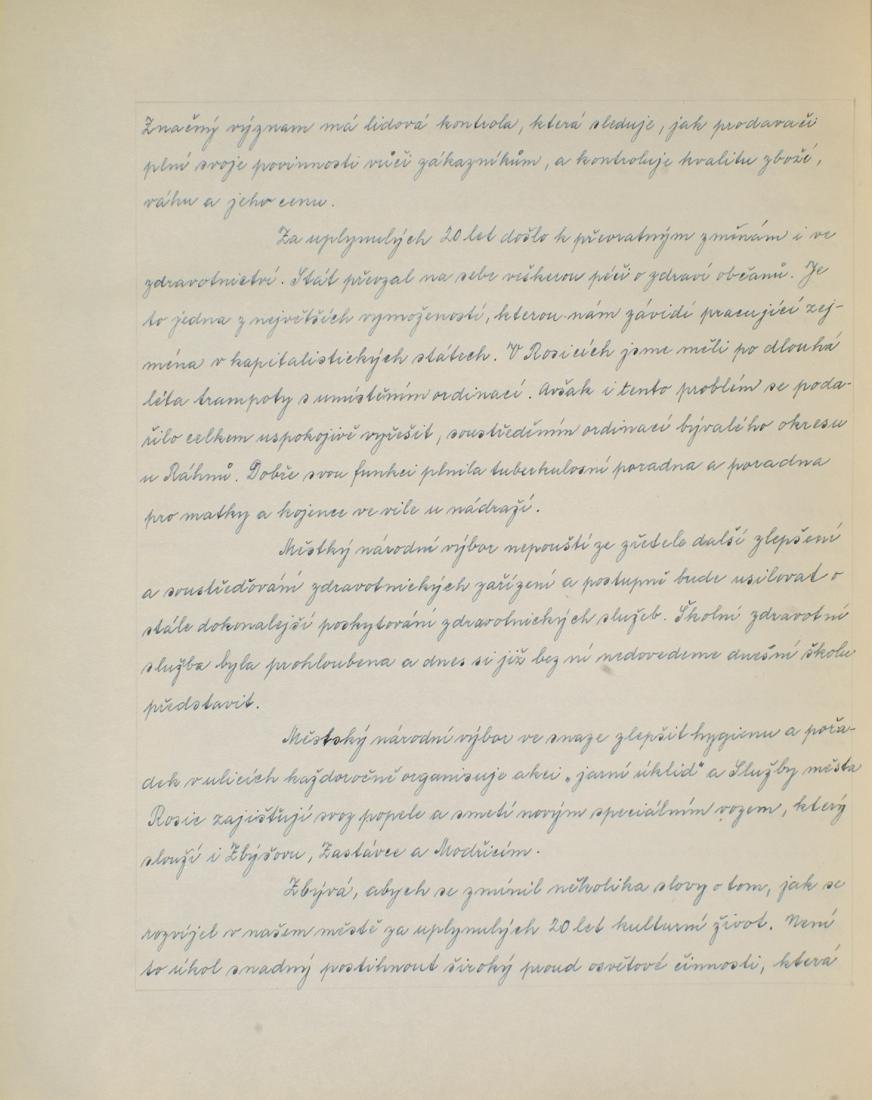 Značný význam má lidová kontrola, která sleduje, jak prodavači
plní svoje povinnosti vůči zákazníkům, a kontroluje kvalitu zboží,
váhu a jeho cenu.
Za uplynulých 20 let došlo k převratným změnám i ve
zdravotnictví. Stát převzal na sebe veškerou péči o zdraví občanů. Je
to jedna z největších vymožeností, kterou nám závidí pracující zej-
ména v kapitalistických státech. V Rosicích jsme měli po dlouhá
léta trampoty s umístěním ordinací. Avšak i tento problém se poda-
řilo celkem uspokojivě vyřešit, soustředěním ordinací bývalého okresu
u Ráhnů. Dobře svou funkci plnila tuberkulosní poradna a poradna
pro matky a kojence ve vile u nádraží.
Městký národní výbor nepouští ze zřetele další zlepšení
a soustřeďování zdravotnických zařízení a postupně bude usilovat o
stále dokonalejší poskytování zdravotnických služeb. Školní zdravotní
služba byla prohloubena a dnes si již bez ní nedovedeme dnešní školu
představit.
Městský národní výbor ve snaze zlepšit hygienu a pořá-
dek v ulicích každoročně organisuje akci „jarní úklid" a Služby města
Rosic zajišťují svoz popele a smetí novým speciálním vozem, který
slouží i Zbýšovu, Zastávce a Modřicím.
Zbývá, abych se zmínil několika slovy o tom, jak se
rozvíjel v našem městě za uplynulých 20 let kulturní život. Není
to úkol snadný postihnout široký proud osvětové činnosti, která